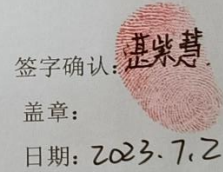 签字确认:湛柴慧
盖章:
日期:2023.7.2